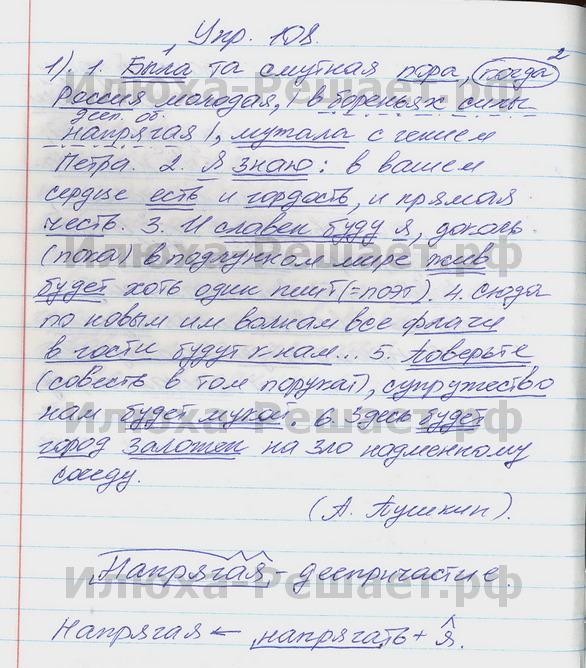 Упр. 108.
1). 1. Была та смутная пора, когда
Россия молодая, в бореньях силы
деепр. об.
напрягая, мужала с гением
Петра. 2. Я знаю: в вашем
сердце есть и гордость, и прямая
честь. 3. И славен буду я, доколь
(пока) в подлунном мире жив
будет хоть один пиит (=поэт). 4. Сюда
по новым им волнам все флаги
в гости будут к нам... 5. Поверьте
(совесть в том порукой), супружество
нам будет мукой. 6. Здесь будет
город заложен на зло надменному
соседу.
(А. Пушкин).
Напрягая - деепричастие.
Напрягая ← напрягать + я.
Илюха-Решает.рф
Илюха-Решает.рф
Илюха-Решает.рф
Илюха-Решает.рф